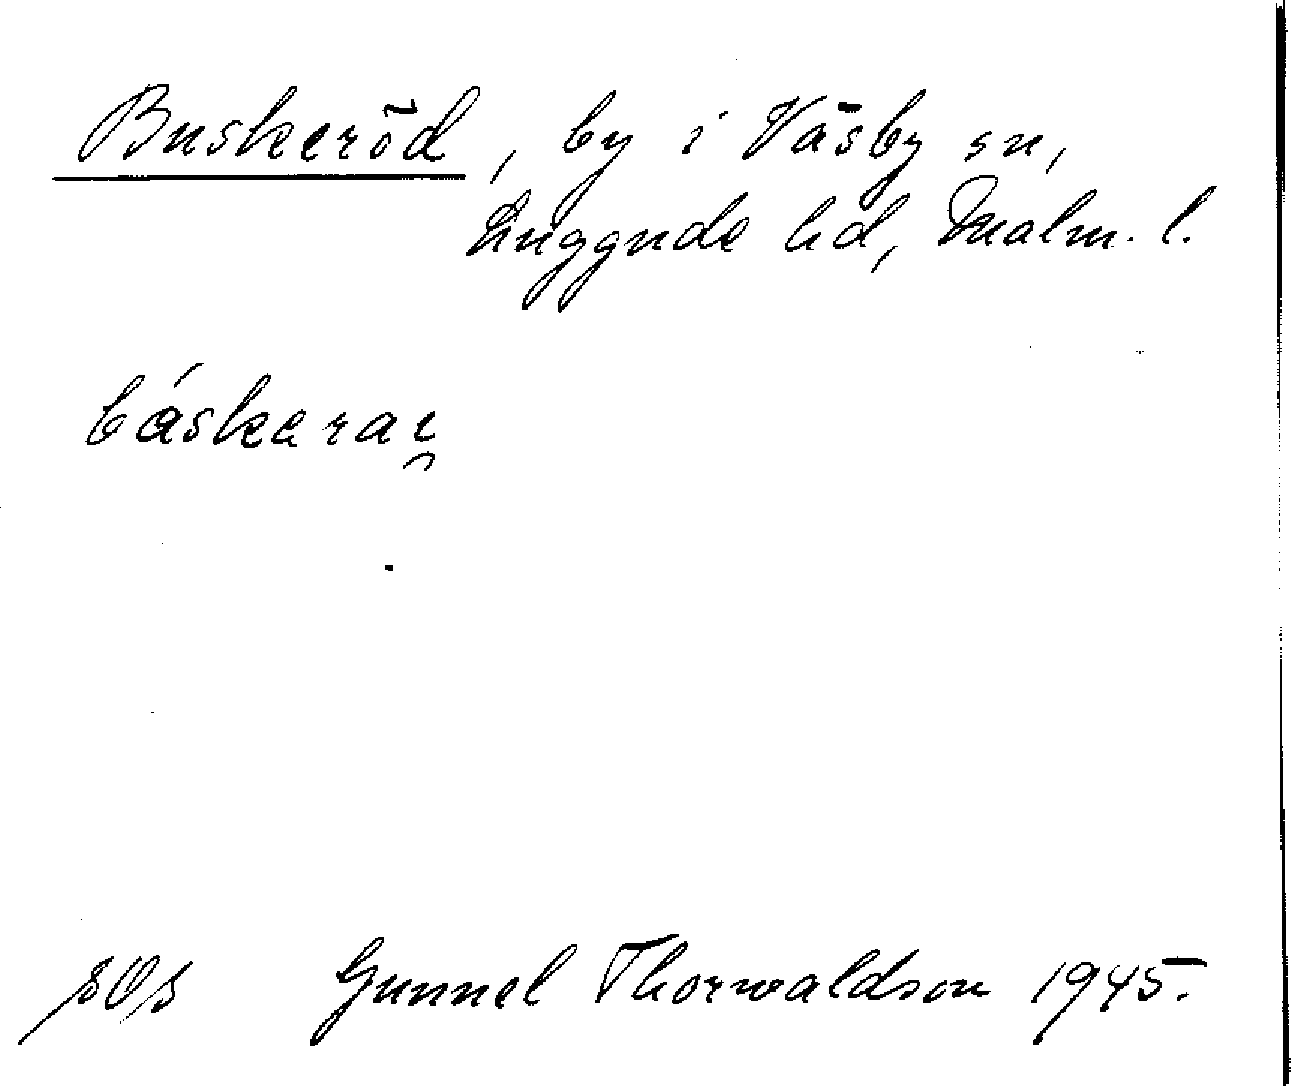 Buskeröd, by i Väsby sn,
Luggude hd, Malm. l.
báskarai̯
Gunnel Thorwaldson 1945.